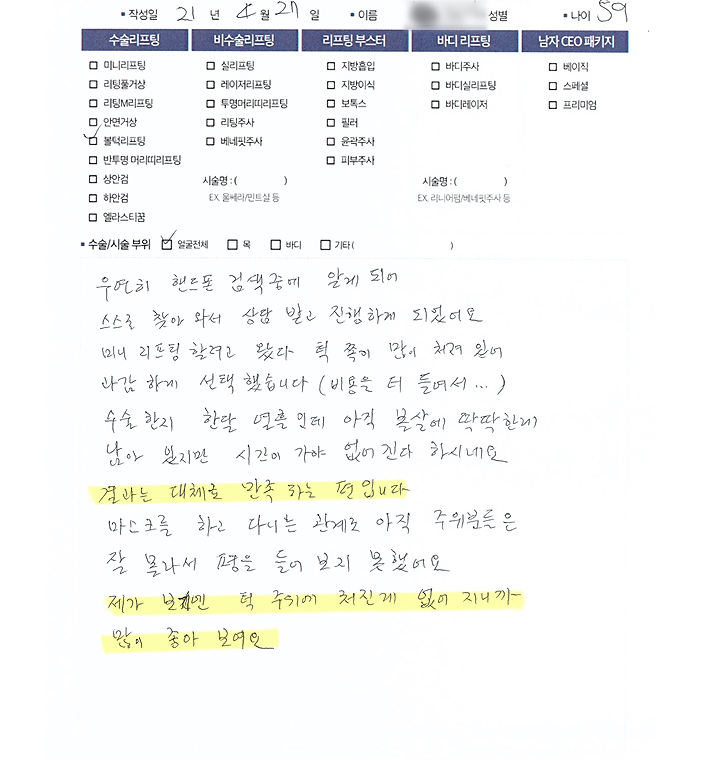 ▪ 작성일 21 년 4 월 27 일 ▪ 이름 성별 ▪ 나이 59
수술리프팅 비수술리프팅 리프팅 부스터 바디 리프팅 남자 CEO 패키지
□ 미니리프팅 □ 실리프팅 □ 지방흡입 □ 바디주사 □ 베이직
□ 리팅풀거상 □ 레이저리프팅 □ 지방이식 □ 바디실리프팅 □ 스페셜
□ 리팅M리프팅 □ 투명머리띠리프팅 □ 보톡스 □ 바디레이저 □ 프리미엄
□ 안면거상 □ 리팅주사 □ 필러
☑ 볼턱리프팅 □ 베네핏주사 □ 윤곽주사
□ 반투명 머리띠리프팅 □ 피부주사
□ 상안검 시술명 : ( ) 시술명 : ( )
□ 하안검 EX. 울쎄라/민트실 등 EX. 리니어펌/베네핏주사 등
□ 엘라스티꿈
▪ 수술/시술 부위 ☑ 얼굴전체 □ 목 □ 바디 □ 기타 ( )
우연히 핸드폰 검색중에 알게 되어
스스로 찾아 와서 상담 받고 진행하게 되었어요
미니 리프팅 할려고 왔다 턱 쪽이 많이 쳐져 있어
과감 하게 선택 했습니다 (비용을 더 들여서 ... )
수술 한지 한달 열흘 인데 아직 볼살에 딱딱한게
남아 있지만 시간이 가야 없어 진다 하시네요
결과는 대체로 만족 하는 편 입니다
마스크를 하고 다니는 관계로 아직 주위분들은
잘 몰라서 평을 들어 보지 못했어요
제가 보기엔 턱 주위에 쳐진게 없어 지니까
많이 좋아 보여요